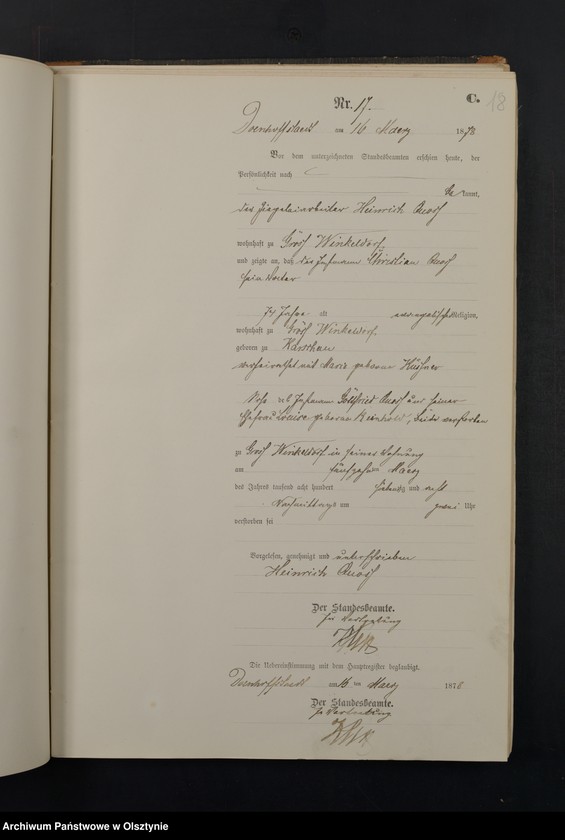 C.
18
Nr. 17.
Doenhoffstaedt am 16 Maerz 1878
Vor dem unterzeichneten Standesbeamten erschien heute, der
Persönlichkeit nach
be kannt,
der Ziegeleiarbeiter Heinrich
wohnhaft zu Groß Winkeldorf
und zeigte an, daß der Instmann Christian
sein Vater
74 Jahre alt evangelischer Religion,
wohnhaft zu Groß Winkeldorf
geboren zu Karschau
verheirathet mit Maria geborene
Sohn des Instmann Gottfried und seiner
Ehefrau Louise geborene Reinhold, beide verstorben
zu Groß Winkeldorf in seiner Wohnung
am fünfzehn Maerz
des Jahres tausend acht hundert siebenzig und acht
Nachmittags um zwei Uhr
verstorben sei
Vorgelesen, genehmigt und unterschrieben
Heinrich
Der Standesbeamte.
In Vertretung
Die Uebereinstimmung mit dem Hauptregister beglaubigt.
Doenhoffstaedt am 16 ten Maerz 1878
Der Standesbeamte.
In Vertretung
Archiwum Państwowe w Olsztynie